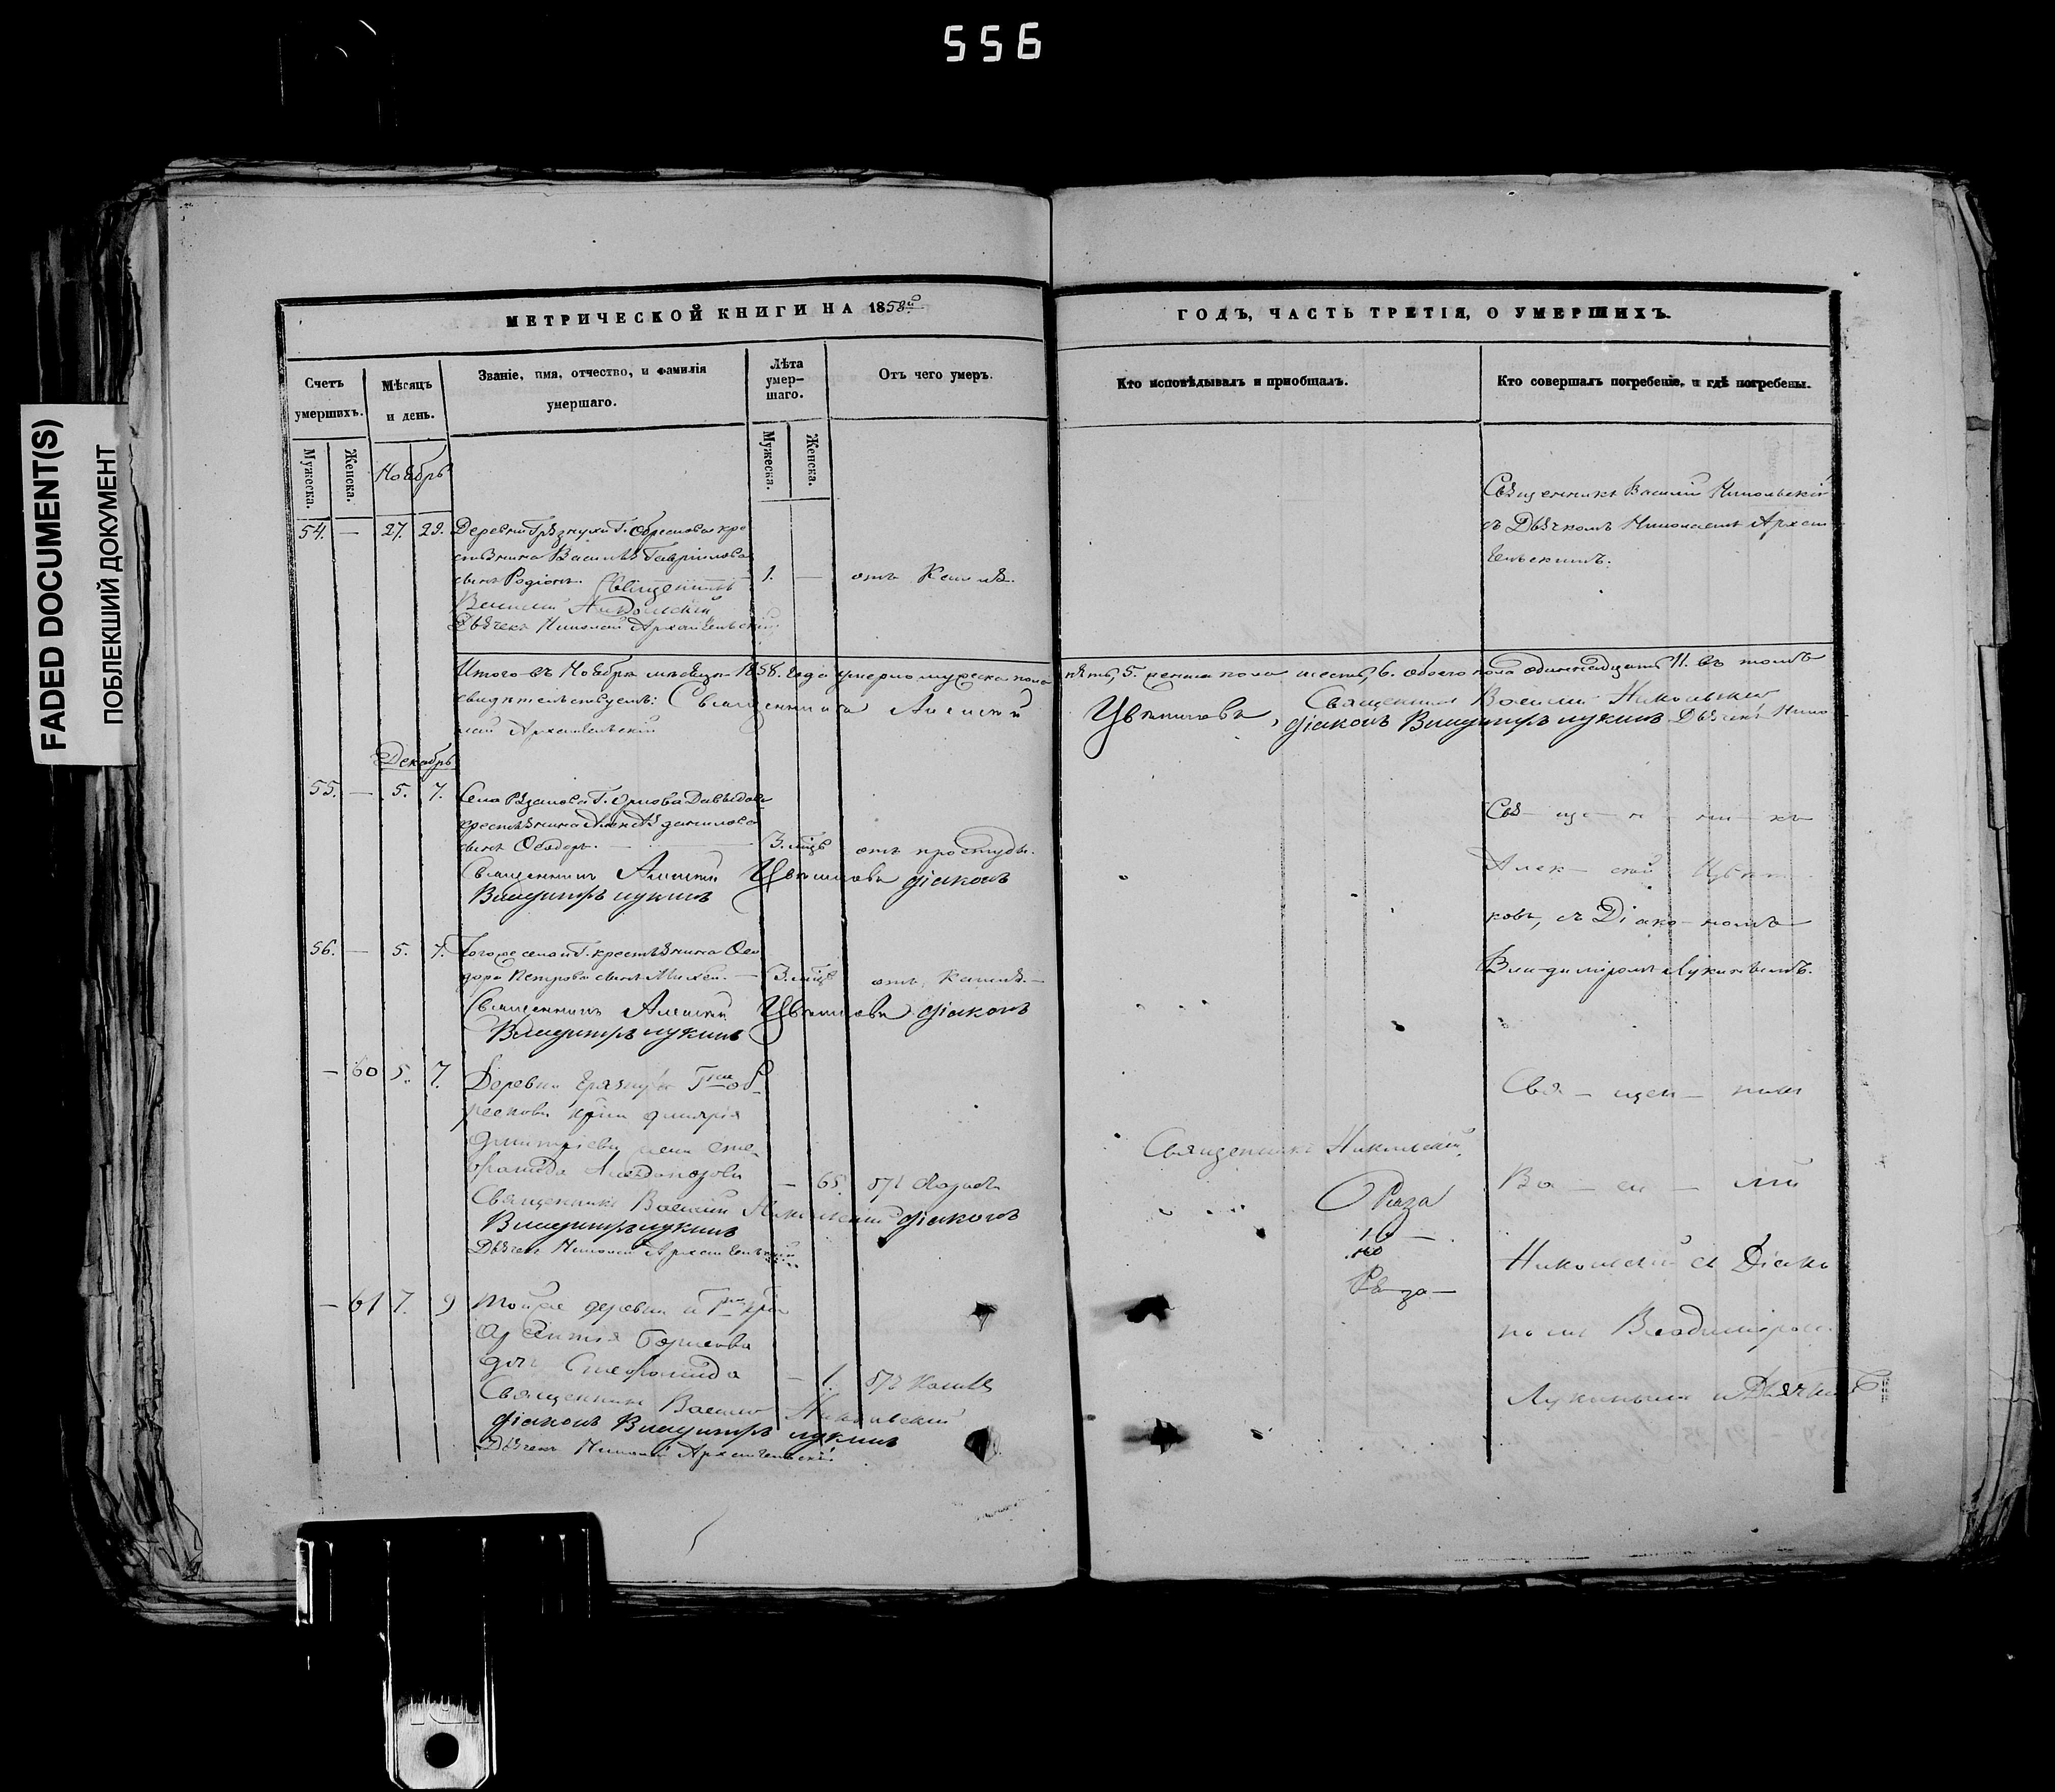 556
FADED DOCUMENT(S)
ПОБЛЕКШИЙ ДОКУМЕНТ
МЕТРИЧЕСКОЙ КНИГИ НА 1858й
ГОДЪ, ЧАСТЬ ТРЕТІЯ, О УМЕРШИХЪ.
Счетъ умершихъ.
Мѣсяцъ и день.
Званіе, имя, отчество, и фамилія
умершаго.
Лѣта
умер-
шаго.
Отъ чего умеръ.
Кто исповѣдывалъ и пріобщалъ.
Кто совершалъ погребеніе, и гдѣ погребены.
Мужеска.
Женска.
Мужеска.
Женска.
Ноябрь
54. — 27. 29. Деревни Грязнухи Г. Обрескова кре
стьянина Василья Гаврилова
сынъ Родіонъ. Священникъ
1. — отъ Кашля.
Василій Никольскій
Дьячекъ Николай Архангельскій
Священникъ Василій Никольскій
съ Дьячкомъ Николаемъ Архан
гельскимъ.
Итого въ Ноябрѣ мѣсяцѣ 1858. года умерло мужеска пола пять, 5. женска пола шесть, 6. обоего пола одиннадцать 11. въ томъ
свидѣтельствуемъ: Священникъ Алексѣй Цвѣтковъ, Священникъ Василій Никольскій
діаконъ Владиміръ Лукинъ Дьячекъ Нико
лай Архангельскій
Декабрь
55. — 5. 7. Села Г. Орлова Давыдова
крестьянина Данилова
сынъ Ѳеодоръ. — 3. мѣц отъ простуды.
Священникъ Алексѣй Цвѣтковъ діаконъ
Владиміръ Лукинъ
Свя — ще — н — ни — къ
Алек — сѣй Цвѣт
ковъ, съ Діако — номъ
Владиміромъ Лукинымъ.
56. — 5. 7. Тогоже села и Г. крестьянина Ѳео
дора Петрова сынъ Михей. — 3. мѣц отъ Кашля. —
Священникъ Алексѣй Цвѣтковъ діаконъ
Владиміръ Лукинъ
— 60 5. 7. Деревни Грязнухи Об
рескова
Дмитріева жена Сте
фанида — 65.
Священникъ Василій Никольскій діаконъ
Владиміръ Лукинъ
Дьячекъ Николай Архангельскій
Священникъ Никольскій.
Свя — щен — никъ
Ва — си — лій
Никольскій съ Діако
номъ Владиміромъ
Лукинымъ и Дьячкомъ
— 61 7. 9 Тойже деревни и
дочь Стефанида — 1. отъ Кашля
Священникъ Василій Никольскій
діаконъ Владиміръ Лукинъ
Дьячекъ Николай Архангельскій